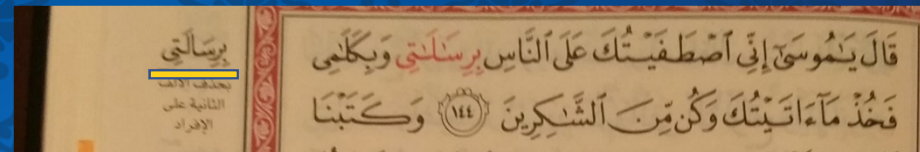 قَالَ يَـٰمُوسَىٰٓ إِنِّي ٱصۡطَفَيۡتُكَ عَلَى ٱلنَّاسِ بِرِسَٰلَٰتِي وَبِكَلَٰمِي
فَخُذۡ مَآ ءَاتَيۡتُكَ وَكُن مِّنَ ٱلشَّٰكِرِينَ ١٤٤ وَكَتَبۡنَا
بِرِسَالَتِي
بحذف الألف
الثانية على
الإفراد